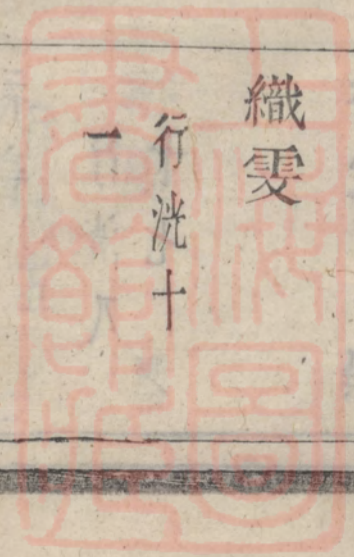 織雯
行洸十
一